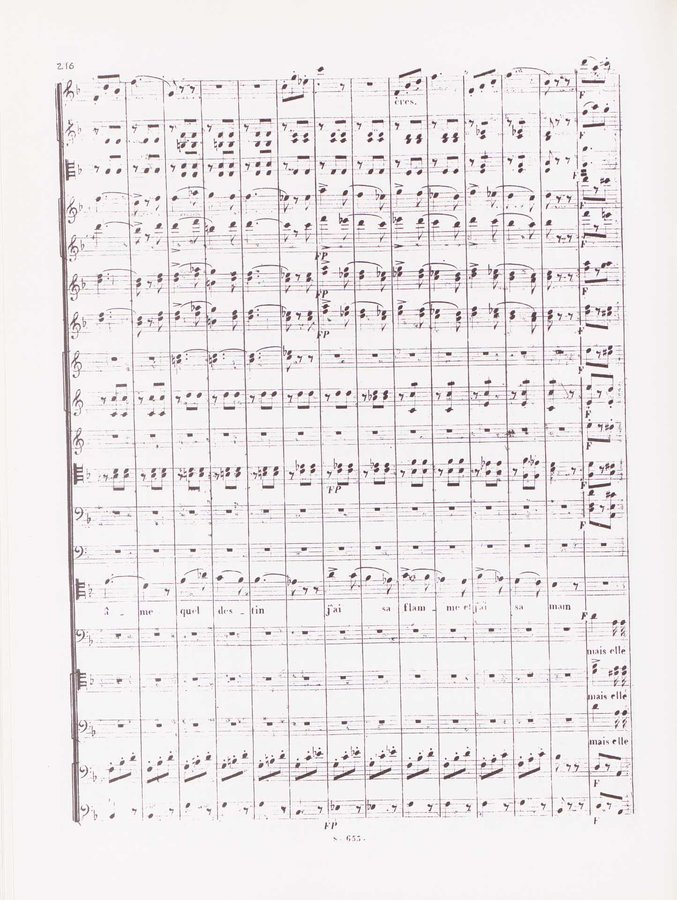 216
cres.
F
F
F
F
FP
FP
F
FP
F
F
F
F
FP
F
F
â - me quel des - tin j'ai sa flam - me et j'ai sa main
F
mais elle
mais elle
mais elle
F
FP
F
S. 655.